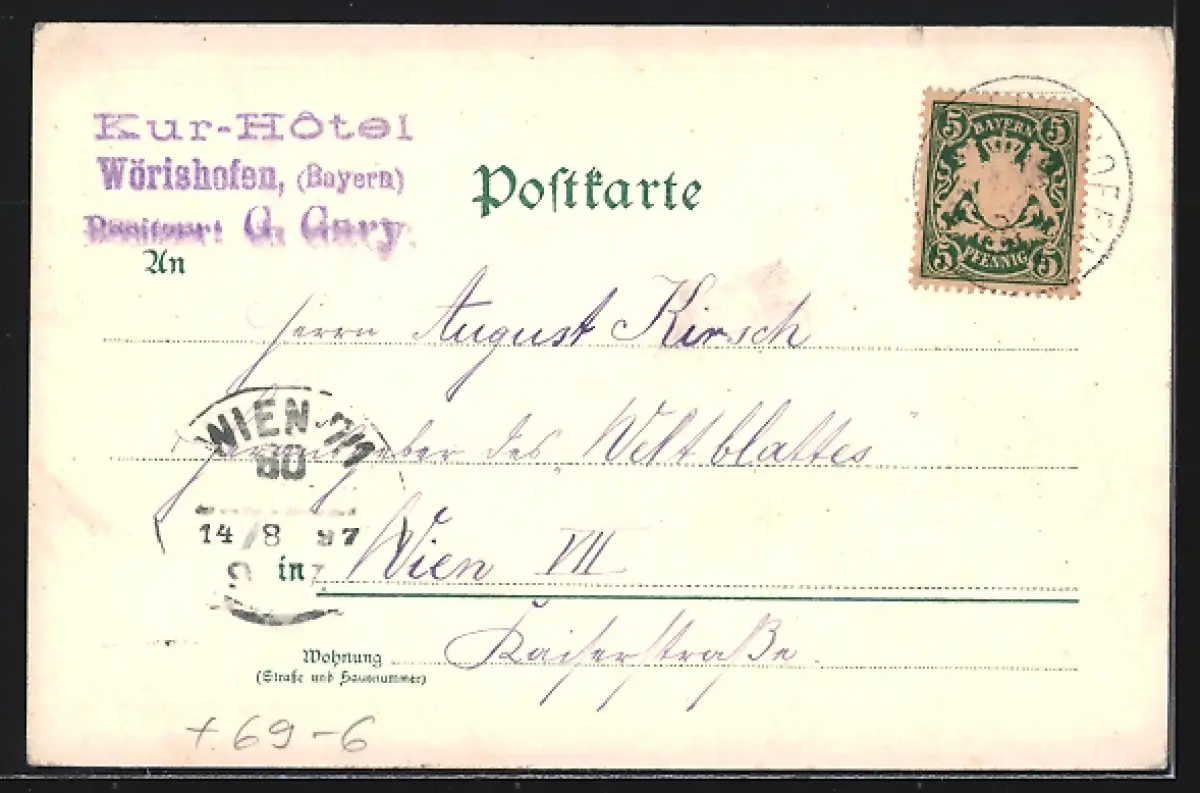 Kur-Hôtel
Wörishofen, (Bayern)
G. Gary.
Poſtkarte
5 BAYERN 5
5 PFENNIG 5
HOFEN
An
Herrn August Kirsch
des „Weltblattes“
WIEN 7/1
80
14/8 97
9
in Wien VII
Wohnung Kaiserstraße.
(Straße und Hausnummer)
+69-6